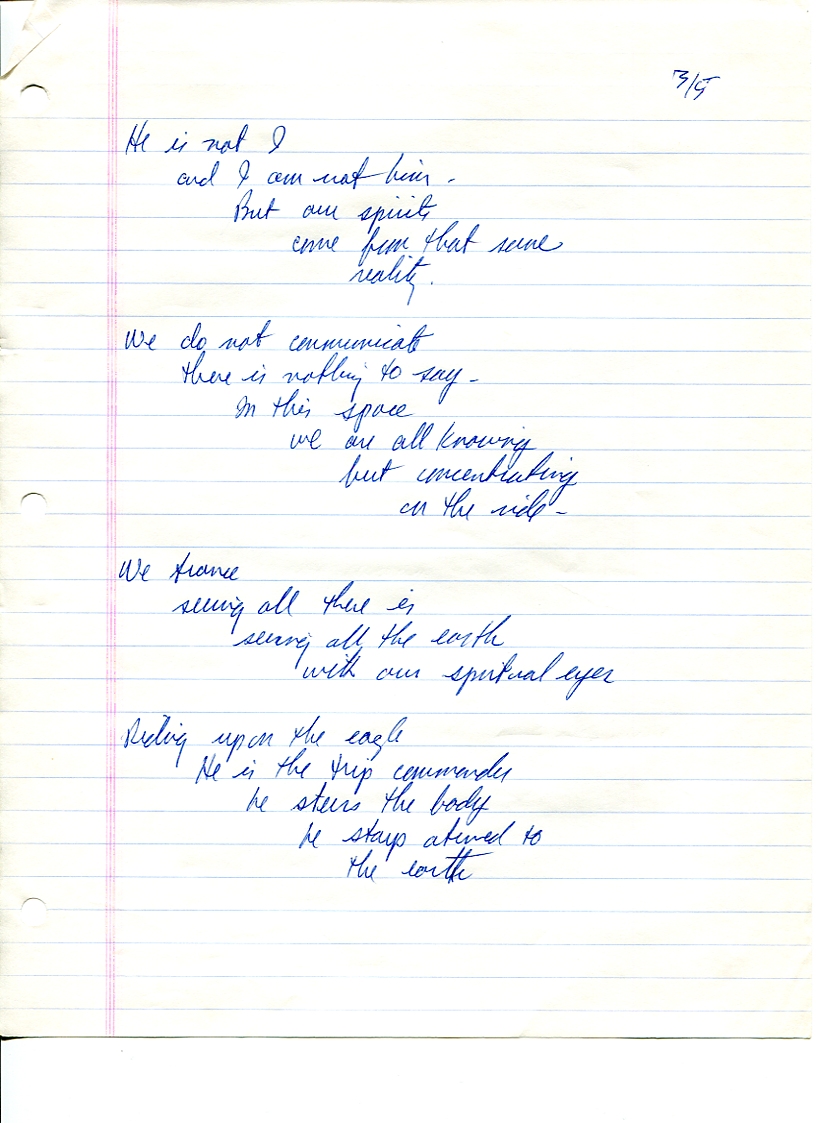 3/5
He is not I
and I am not him -
But our spirits
come from that same
reality.
We do not communicate
there is nothing to say -
In this space
we are all knowing
but concentrating
on the ride -
We trance
seeing all there is
seeing all the earth
with our spiritual eyes
Riding upon the eagle
He is the trip commander
he steers the body
he stays atuned to
the earth